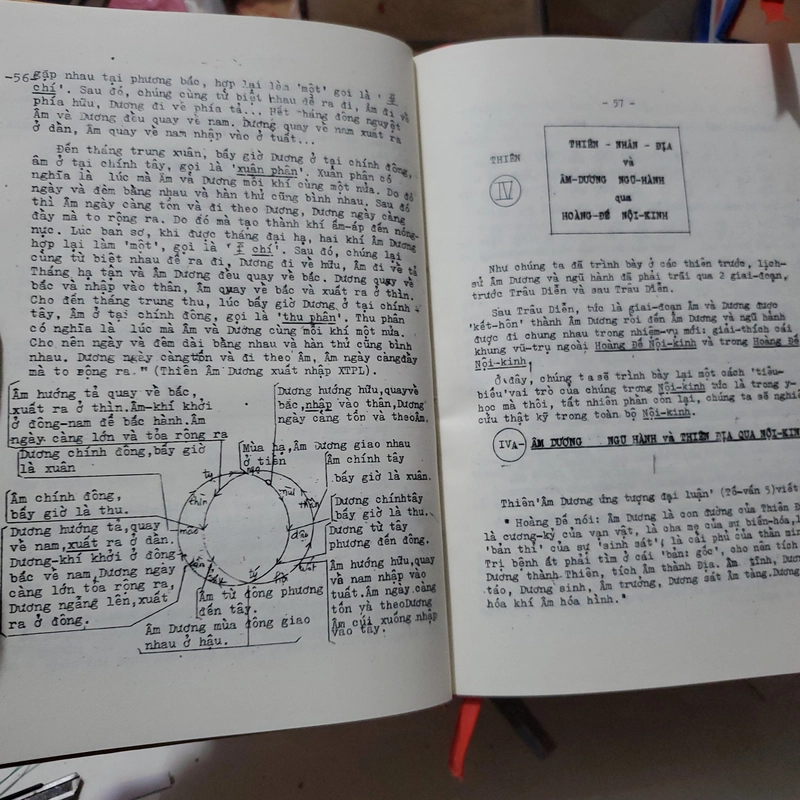 -56-
gặp nhau tại phương bắc, hợp lại làm 'một' gọi là '至
chí'. Sau đó, chúng cùng từ biệt nhau để ra đi, Âm đi về
phía hữu, Dương đi về phía tả... Hết tháng đông nguyệt
Âm và Dương đều quay về nam. Dương quay về nam xuất ra
ở dần, Âm quay về nam nhập vào ở tuất...
Đến tháng trung xuân, bấy giờ Dương ở tại chính đông,
âm ở tại chính tây, gọi là 'xuân phân'. Xuân phân có
nghĩa là lúc mà Âm và Dương mỗi khí cùng một nửa. Do đó
ngày và đêm bằng nhau và hàn thử cũng bình nhau. Sau đó
thì Âm ngày càng tổn và đi theo Dương, Dương ngày càng
đầy mà to rộng ra. Do đó mà tạo thành khí ấm-áp đến nóng-
nực. Lúc ban sơ, khi được tháng đại hạ, hai khí Âm Dương
hợp lại làm 'một', gọi là '至 chí'. Sau đó, chúng lại
cùng từ biệt nhau để ra đi, Dương đi về hữu, Âm đi về tả
Tháng hạ tận và Âm Dương đều quay về bắc. Dương quay về
bắc và nhập vào thân, Âm quay về bắc và xuất ra ở thìn.
Cho đến tháng trung thu, lúc bấy giờ Dương ở tại chính
tây, Âm ở tại chính đông, gọi là 'thu phân'. Thu phân
có nghĩa là lúc mà Âm và Dương cùng mỗi khí một nửa.
Cho nên ngày và đêm dài bằng nhau và hàn thử cũng bình
nhau. Dương ngày càng tổn và đi theo Âm, Âm ngày càng đầy
mà to rộng ra." (Thiên Âm Dương xuất nhập XTPL).
Âm hướng tả quay về bắc,
xuất ra ở thìn. Âm-khí khởi
ở đông-nam để bắc hành. Âm
ngày càng lớn và tỏa rộng ra
Dương hướng hữu, quay về
bắc, nhập vào thân, Dương
ngày càng tổn và theo Âm.
Dương chính đông, bấy giờ
là xuân
Mùa hạ, Âm Dương giao nhau
ở tiền
Âm chính tây
bấy giờ là xuân.
Âm chính đông,
bấy giờ là thu.
Dương chính tây
bấy giờ là thu.
Dương hướng tả, quay
về nam, xuất ra ở dần.
Dương-khí khởi ở đông
bắc về nam, Dương ngày
càng lớn tỏa rộng ra,
Dương ngẩng lên, xuất
ra ở đông.
tỵ
ngọ
mùi
thìn
thân
mão
dậu
dần
tuất
sửu
tý
hợi
Dương từ tây
phương đến đông.
Âm hướng hữu, quay
về nam nhập vào
tuất. Âm ngày càng
tổn và theo Dương
Âm cúi xuống nhập
vào tây.
Âm từ đông phương
đến tây.
Âm Dương mùa đông giao
nhau ở hậu.
- 57 -
THIÊN
IV
THIÊN - NHÂN - ĐỊA
và
ÂM-DƯƠNG NGŨ-HÀNH
qua
HOÀNG-ĐẾ NỘI-KINH
Như chúng ta đã trình bày ở các thiên trước, lịch-
sử Âm Dương và ngũ hành đã phải trải qua 2 giai-đoạn,
trước Trâu Diễn và sau Trâu Diễn.
Sau Trâu Diễn, tức là giai-đoạn Âm và Dương được
'kết-hôn' thành Âm Dương rồi đến Âm Dương và ngũ hành
được đi chung nhau trong nhiệm-vụ mới: giải-thích cái
khung vũ-trụ ngoài Hoàng Đế Nội-Kinh và trong Hoàng Đế
Nội-Kinh.
Ở đây, chúng ta sẽ trình bày lại một cách 'tiêu-
biểu' vai trò của chúng trong Nội-kinh tức là trong y-
học mà thôi, tất nhiên phần còn lại, chúng ta sẽ nghiên
cứu thật kỹ trong toàn bộ Nội-kinh.
IVA- ÂM DƯƠNG NGŨ HÀNH và THIÊN ĐỊA QUA NỘI-KINH
Thiên 'Âm Dương ứng tượng đại luận' (Tố-vấn 5) viết
" Hoàng Đế nói: Âm Dương là con đường của Thiên Đ
là cương-kỷ của vạn vật, là cha mẹ của sự biến-hóa, l
'bản thỉ' của sự 'sinh sát', là cái phủ của thần min
Trị bệnh ắt phải tìm ở cái 'bản: gốc', cho nên tích
Dương thành Thiên, tích Âm thành Địa. Âm tĩnh, Dương
táo, Dương sinh, Âm trưởng, Dương sát Âm tàng. Dương
hóa khí Âm hóa hình."